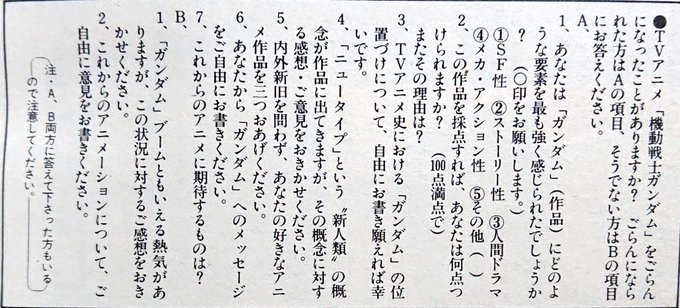 ●TVアニメ「機動戦士ガンダム」をごらん
になったことがありますか？　ごらんになら
れた方はAの項目、そうでない方はBの項目
にお答えください。
A、
1、あなたは『ガンダム』(作品)にどのよ
うな要素を最も強く感じられたでしょうか
？　(○印をお願いします。)
①SF性　②ストーリー性　③人間ドラマ
④メカ・アクション性　⑤その他(　)
2、この作品を採点すれば、あなたは何点つ
けられますか？　(100点満点で)
またその理由は？
3、TVアニメ史における『ガンダム』の位
置づけについて、自由にお書き願えれば幸
いです。
4、「ニュータイプ」という〝新人類〟の概
念が作品に出てきますが、その概念に対す
る感想・ご意見をおきかせください。
5、内外新旧を問わず、あなたの好きなアニ
メ作品を三つおあげください。
6、あなたから『ガンダム』へのメッセージ
をご自由にお書きください。
7、これからのアニメに期待するものは？
B、
1、『ガンダム』ブームともいえる熱気があ
りますが、この状況に対するご感想をおき
かせください。
2、これからのアニメーションについて、ご
自由に意見をお書きください。
注・A、B両方に答えて下さった方もいる
ので注意してください。